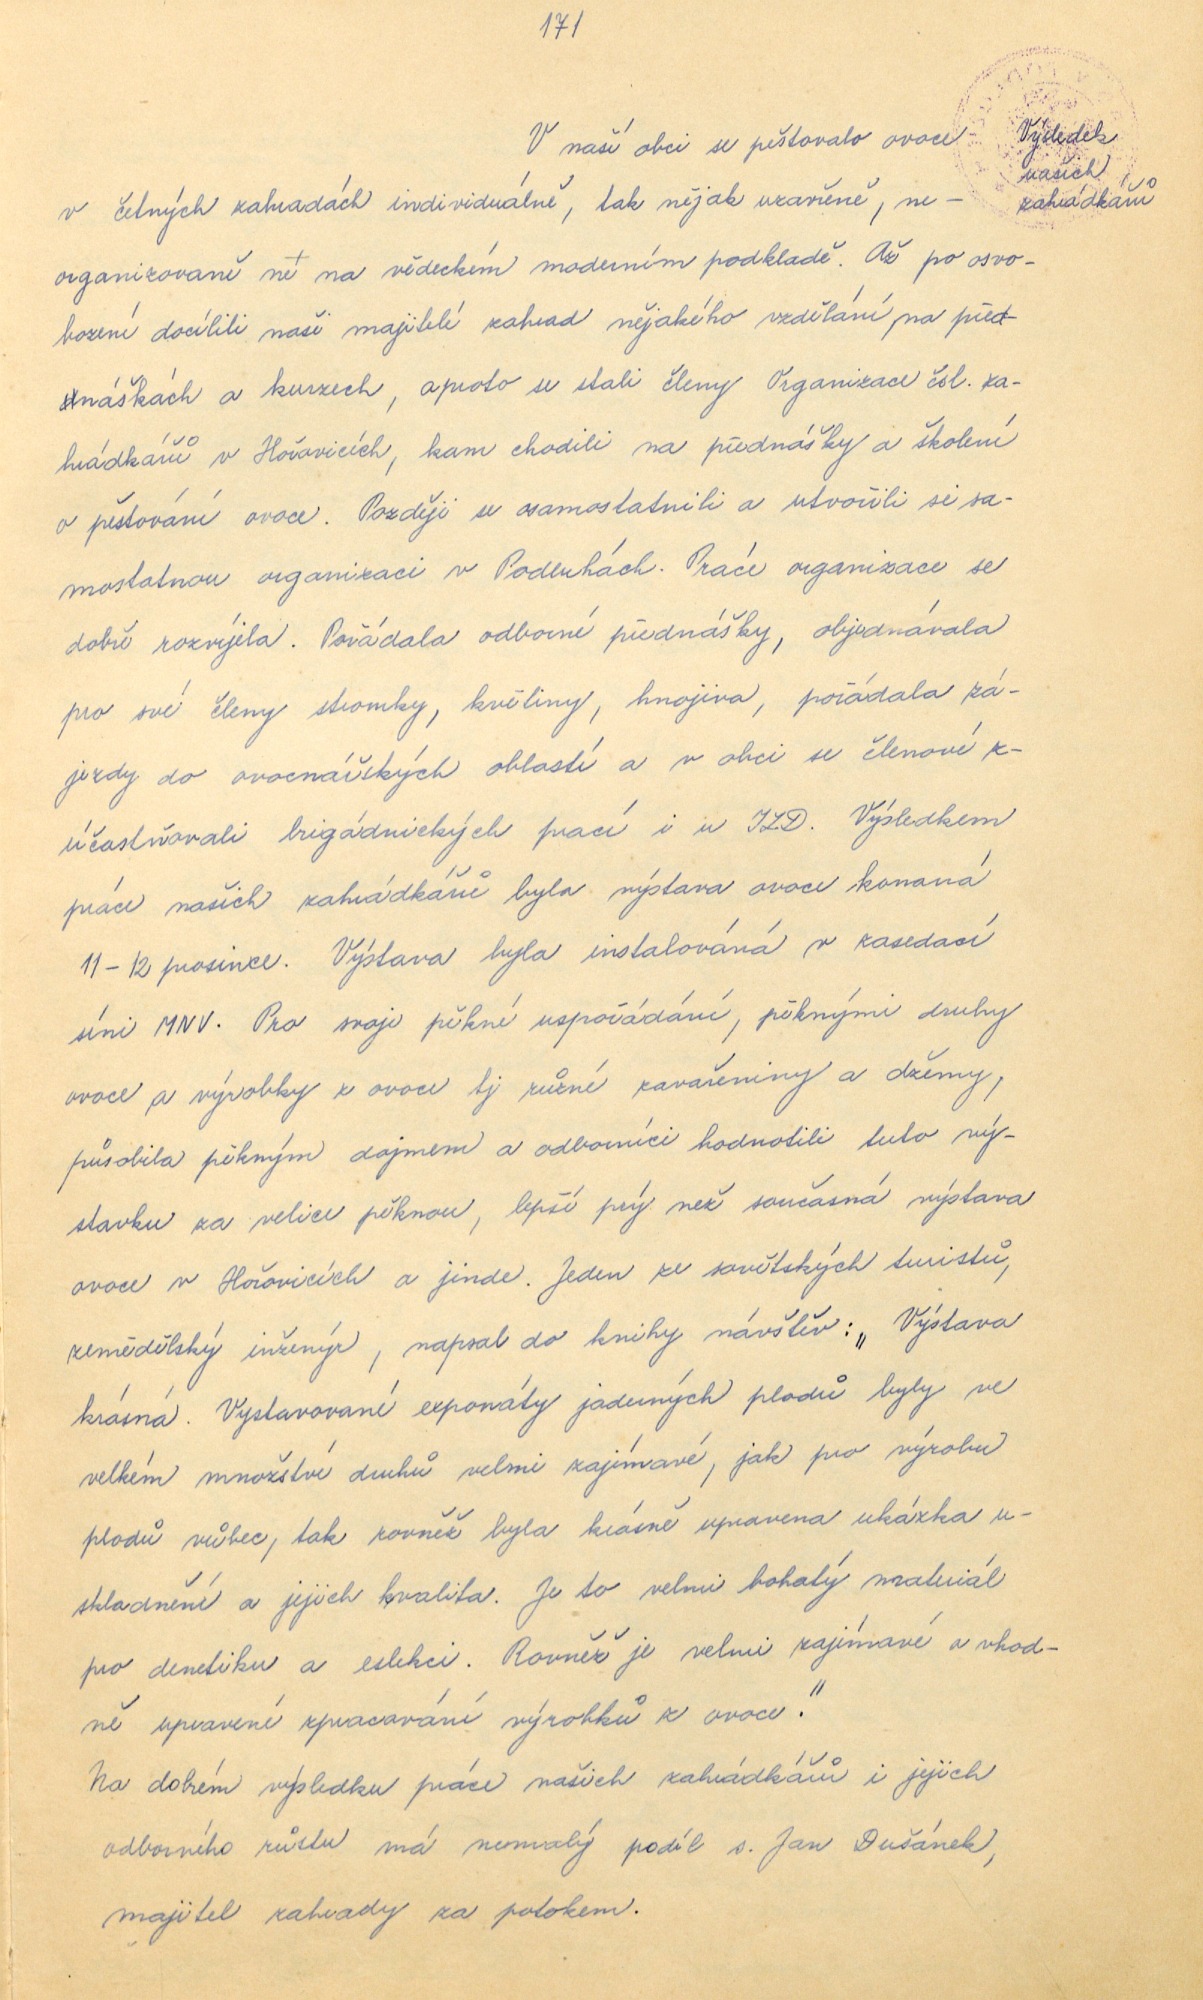 171
V naší obci se pěstovalo ovoce
Výsledek
našich
zahrádkářů
v četných zahradách individuálně, tak nějak uzavřeně, ne-
organizovaně ne na vědeckém moderním podkladě. Až po osvo-
bození docílili naši majitelé zahrad nějakého vzdělání, na před-
náškách a kurzech, a proto se stali členy Organizace čsl. za-
hrádkářů v Hořovicích, kam chodili na přednášky a školení
o pěstování ovoce. Později se osamostatnili a utvořili si sa-
mostatnou organizaci v Podluhách. Práce organizace se
dobře rozvíjela. Pořádala odborné přednášky, objednávala
pro své členy stromky, květiny, hnojiva, pořádala zá-
jezdy do ovocnářských oblastí a v obci se členové z-
účastňovali brigádnických prací i u JZD. Výsledkem
práce našich zahrádkářů byla výstava ovoce konaná
11-12 prosince. Výstava byla instalováná v zasedací
síni MNV. Pro svoje pěkné uspořádání, pěknými druhy
ovoce a výrobky z ovoce tj různé zavařeniny a džemy,
působila pěkným dojmem a odborníci hodnotili tuto vý-
stavku za velice pěknou, lepší prý než současná výstava
ovoce v Hořovicích a jinde. Jeden ze sovětských turistů,
zemědělský inženýr, napsal do knihy návštěv: „Výstava
krásná. Vystavované exponáty jaderných plodů byly ve
velkém množství druhů velmi zajímavé, jak pro výrobu
plodů vůbec, tak rovněž byla krásně upravena ukázka u-
skladnění a jejich kvalita. Je to velmi bohatý materiál
pro denetiku a eslekci. Rovněž je velmi zajímavé a vhod-
ně upravené zpracavání výrobků z ovoce."
Na dobrém výsledku práce našich zahrádkářů i jejich
odborného růstu má nemalý podíl s. Jan Dušánek,
majitel zahrady za potokem.